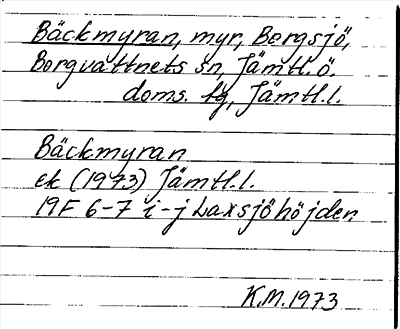 Bäckmyran, myr, Borgsjö,
Borgvattnets sn, Jämtl. ö.
doms. tg, Jämtl. l.
Bäckmyran
ek (1973) Jämtl. l.
19F 6-7 i-j Laxsjöhöjden
K.M. 1973